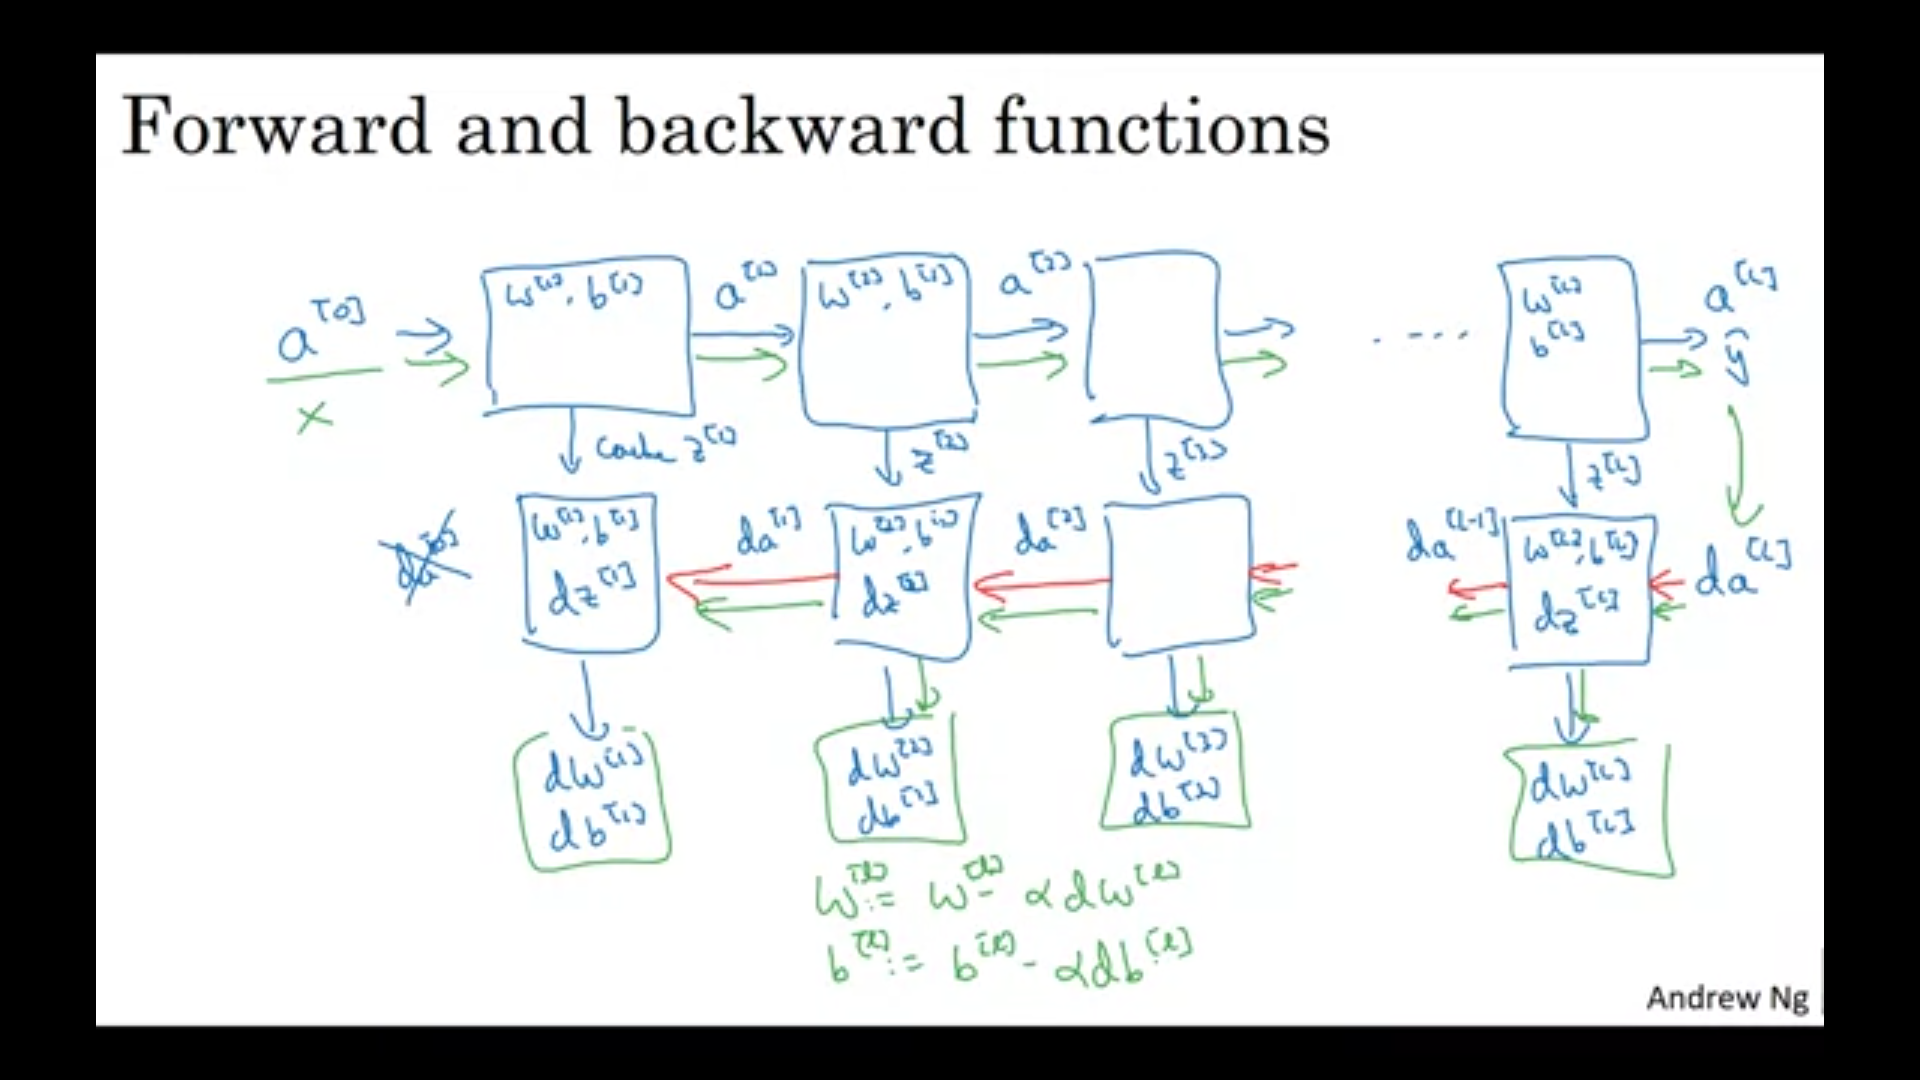 Forward and backward functions
a^[0] w^[1], b^[1] a^[1] w^[2], b^[2] a^[2] .... w^[L] a^[L]
b^[L] ŷ
x
cache z^[1] z^[2] z^[3] z^[L]
da^[0] w^[1], b^[1] da^[1] w^[2], b^[2] da^[2] da^[L-1] w^[L], b^[L] da^[L]
dz^[1] dz^[2] dz^[L]
dw^[1] dw^[2] dw^[3] dw^[L]
db^[1] db^[2] db^[3] db^[L]
w^[l] := w^[l] - αdw^[l]
b^[l] := b^[l] - αdb^[l]
Andrew Ng